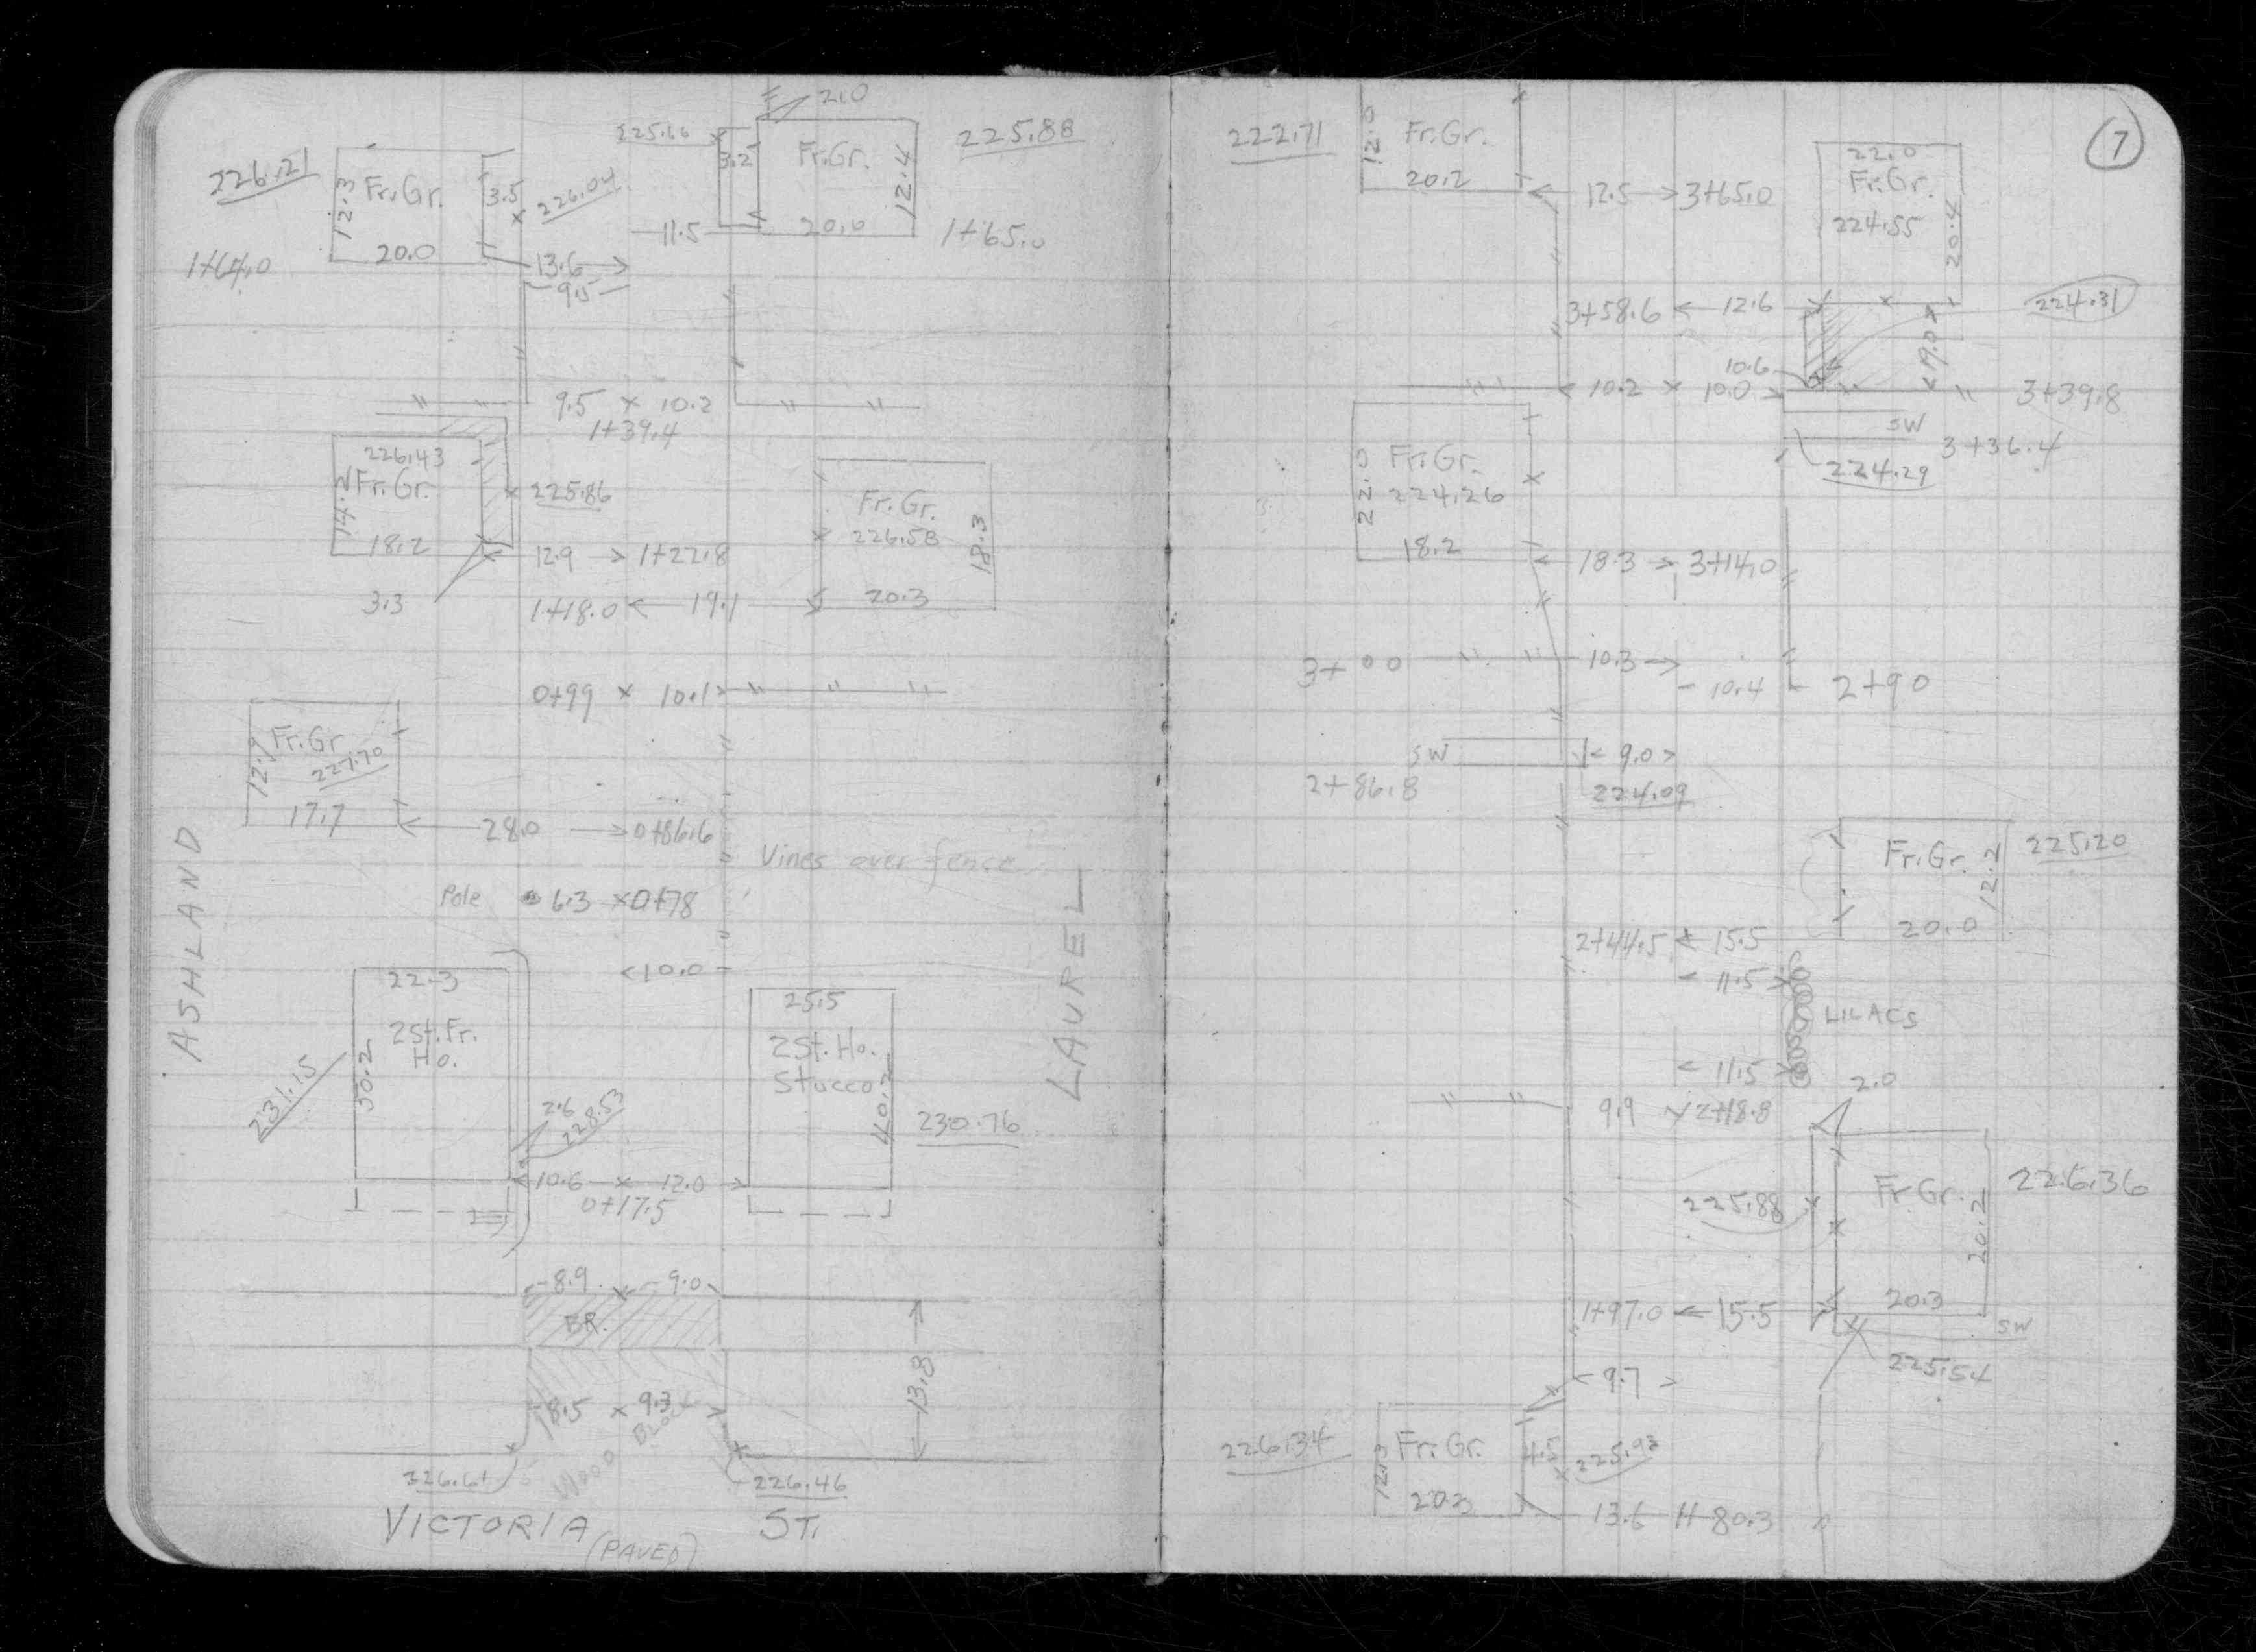 2.0
225.66
3.2
Fr.Gr.
12.4
20.0
225.88
226.21
12.3
Fr.Gr.
3.5
226.04
20.0
11.5
1+65.0
1+64.0
13.6
9.5
9.5 x 10.2
1+39.4
226.43
14.2
Fr.Gr.
225.86
18.2
12.9
1+22.8
Fr.Gr.
226.58
18.3
3.3
1+18.0
19.1
20.3
0+99 x 10.1
12.9
Fr.Gr.
227.70
17.7
28.0
0+86.6
Vines over fence
Pole
6.3 x 0+78
ASHLAND
LAUREL
10.0
22.3
25.5
2St.Fr.
Ho.
30.2
231.15
2St. Ho.
Stucco
40.2
230.76
2.6
228.53
10.6 x 12.0
0+17.5
8.9 x 9.0
BR.
13.8
8.5 x 9.3
WOOD BLOCK
226.61
226.46
VICTORIA ST.
(PAVED)
7
222.71
12.0
Fr.Gr.
20.2
12.5
3+65.0
22.0
Fr.Gr.
224.55
20.4
3+58.6
12.6
224.31
19.0
10.6
10.2 x 10.0
3+39.8
SW
3+36.4
224.29
22.0
Fr.Gr.
224.26
18.2
18.3
3+14.0
3+00
10.3
10.4
2+90
SW
9.0
2+86.8
224.09
Fr.Gr.
12.2
225.20
20.0
2+44.5
15.5
11.5
LILACS
11.5
2.0
9.9 x 2+18.8
225.88
Fr.Gr.
20.2
226.36
1+97.0
15.5
20.3
SW
225.54
9.7
226.34
12.3
Fr.Gr.
4.5
225.93
20.3
13.6
1+80.3